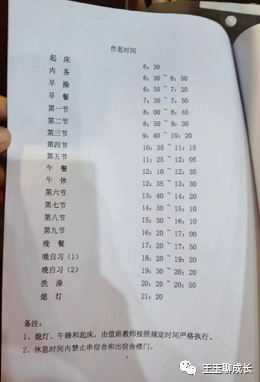 作息时间
起床 6：30
内务 6：30~6：50
早操 6：50~7：20
早餐 7：30~7：50
第一节 8：00~8：40
第二节 8：50~9：30
第三节 9：40~10：20
第四节 10：35~11：15
第五节 11：25~12：05
午餐 12：10~12：35
午休 12：35~13：30
第六节 13：40~14：20
第七节 14：30~15：10
第八节 15：30~16：10
第九节 16：20~17：00
晚餐 17：20~17：50
晚自习（1） 18：20~19：20
晚自习（2） 19：30~20：20
洗澡 20：20~20：50
熄灯 21：20
备注：
1、熄灯、午睡和起床，由值班教师按照规定时间严格执行。
2、休息时间内禁止串宿舍和出宿舍楼门。
王玉聊成长